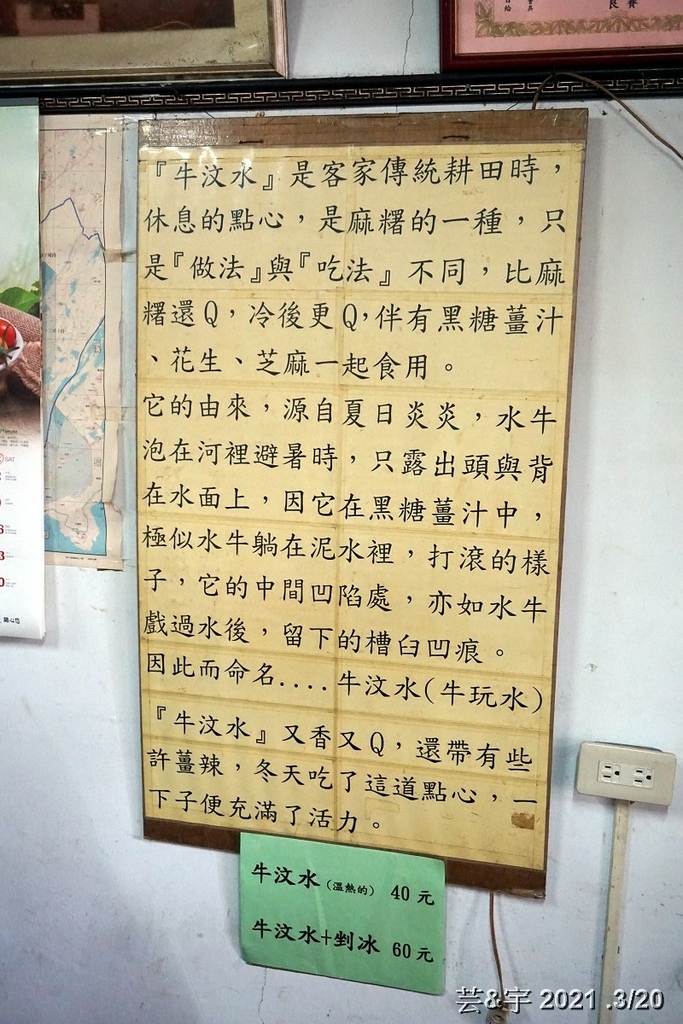 『牛汶水』是客家傳統耕田時，
休息的點心，是麻糬的一種，只
是『做法』與『吃法』不同，比麻
糬還Q，冷後更Q，伴有黑糖薑汁
、花生、芝麻一起食用。
它的由來，源自夏日炎炎，水牛
泡在河裡避暑時，只露出頭與背
在水面上，因它在黑糖薑汁中，
極似水牛躺在泥水裡，打滾的樣
子，它的中間凹陷處，亦如水牛
戲過水後，留下的槽臼凹痕。
因此而命名....牛汶水(牛玩水)
『牛汶水』又香又Q，還帶有些
許薑辣，冬天吃了這道點心，一
下子便充滿了活力。
牛汶水(溫熱的) 40元
牛汶水+剉冰 60元
SAT
芸&宇 2021 .3/20